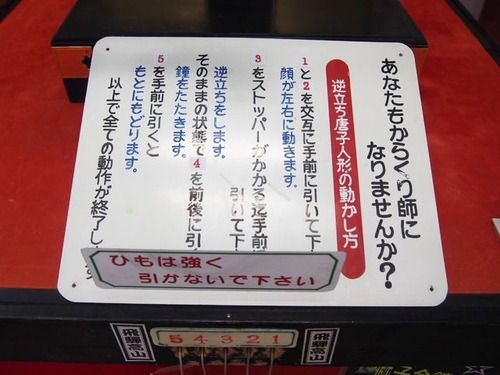 あなたもからくり師に
なりませんか?
逆立ち唐子人形の動かし方
1と2を交互に手前に引いて下
顔が左右に動きます。
3をストッパーがかかる迄手前に
引いて下
逆立ちをします。
そのままの状態で4を前後に引
鐘をたたきます。
5を手前に引くと
もとにもどります。
以上で全ての動作が終了し
す
ひもは強く
引かないで下さい
飛騨高山
5 4 3 2 1
飛騨高山